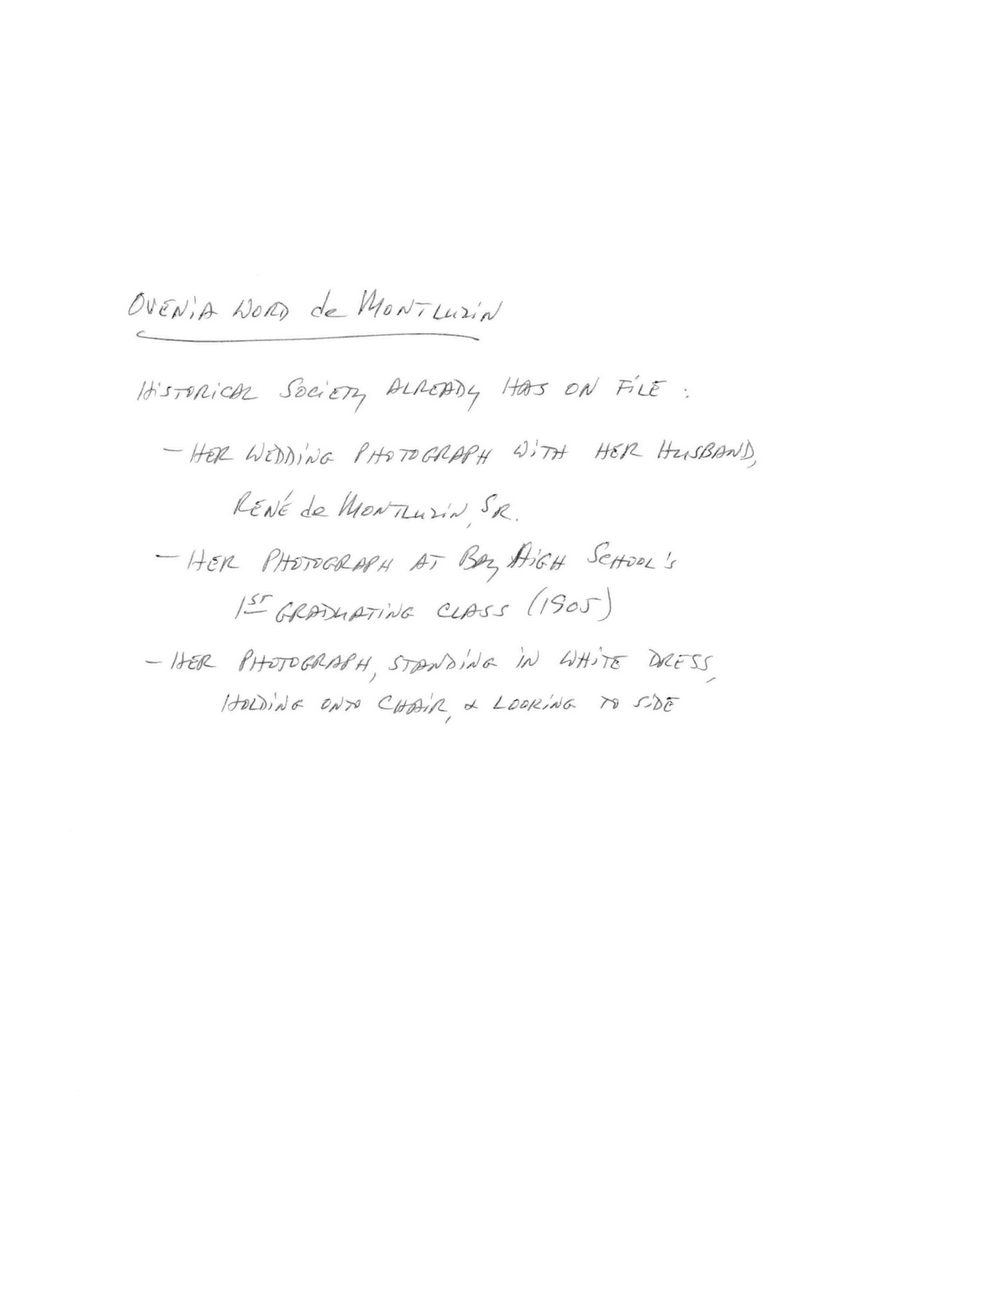 OVENIA WORD de MONTLUZIN
HISTORICAL SOCIETY ALREADY HAS ON FILE :
- HER WEDDING PHOTOGRAPH WITH HER HUSBAND,
RENÉ de MONTLUZIN, SR.
- HER PHOTOGRAPH AT BAY HIGH SCHOOL'S
1ST GRADUATING CLASS (1905)
- HER PHOTOGRAPH, STANDING IN WHITE DRESS,
HOLDING ONTO CHAIR, & LOOKING TO SIDE